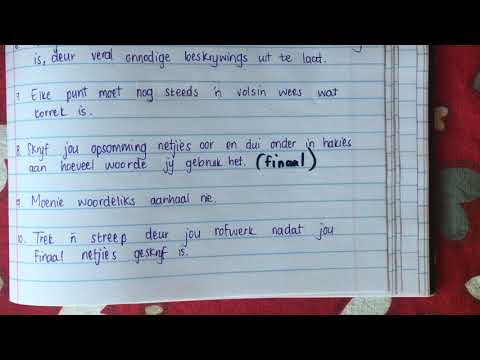 is, deur veral onnodige beskrywings uit te laat.
7. Elke punt moet nog steeds 'n volsin wees wat
korrek is.
8. Skryf jou opsomming netjies oor en dui onder in hakies
aan hoeveel woorde jy gebruik het. (finaal)
9. Moenie woordeliks aanhaal nie.
10. Trek 'n streep deur jou rofwerk nadat jou
finaal netjies geskryf is.